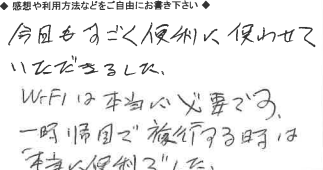 ◆ 感想や利用方法などをご自由にお書き下さい ◆
今回もすごく便利に使わせて
いただきました。
Wi-Fiは本当に必要です。
一時帰国で旅行する時は
本当に便利でした。